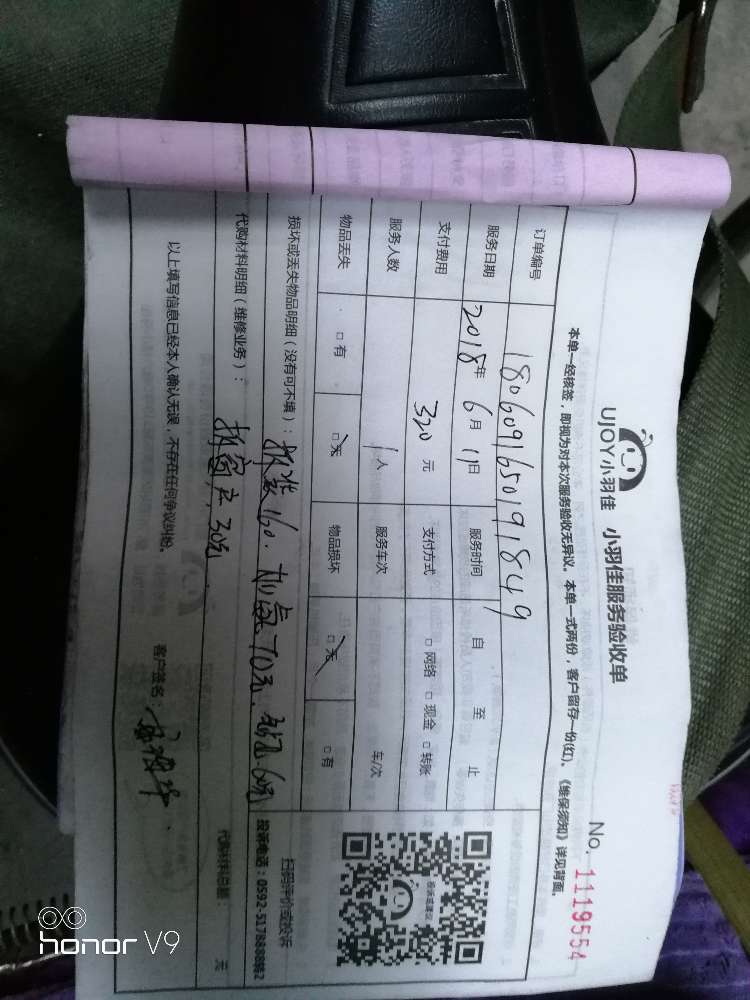 UJOY小羽佳 小羽佳服务验收单
No. 1119554
本单一经核签，即视为对本次服务验收无异议。本单一式两份，客户留存一份(红)。《维保须知》详见背面。
订单编号 180609165019 1849
服务日期 2018年 6月 11日 服务时间 自 至 止
支付费用 320 元 支付方式 □网络 □现金 □转账
服务人数 1人 服务车次 车/次
物品丢失 □有 □无 物品损坏 □无 □有
投诉或建议
扫码评价或投诉
投诉电话：0592-5178888转2
损坏或丢失物品明细（没有可不填）： 拆装160. 加氟70元. 钻孔60元
代购材料明细（维修业务）： 拆窗户30元. 代购材料总额： 元
以上填写信息已经本人确认无误，不存在任何争议纠纷。 客户签名：
honor V9